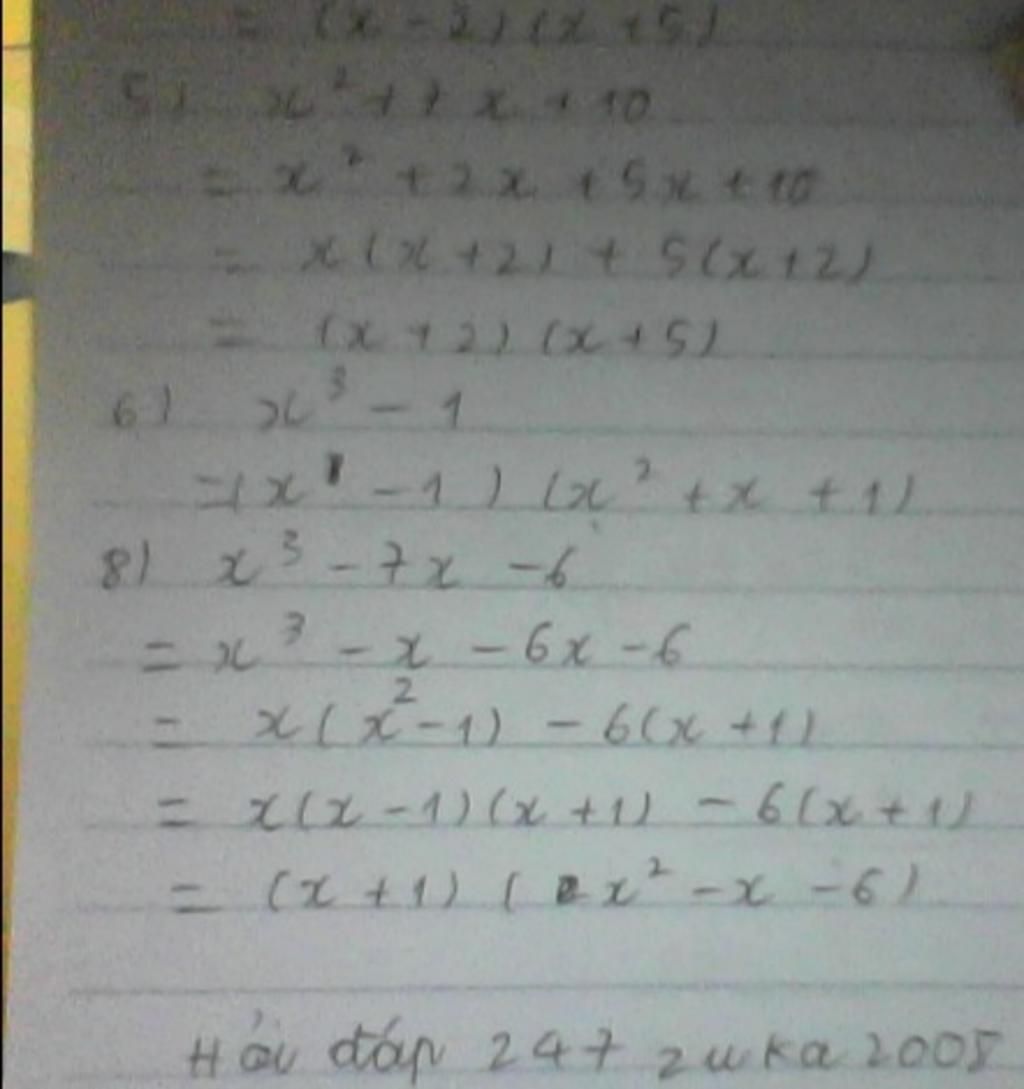 = (x - 2) (x + 5)
5) x² + 7x + 10
= x² + 2x + 5x + 10
= x(x + 2) + 5(x + 2)
= (x + 2) (x + 5)
6) x³ - 1
= (x - 1) (x² + x + 1)
8) x³ - 7x - 6
= x³ - x - 6x - 6
= x(x² - 1) - 6(x + 1)
= x(x - 1)(x + 1) - 6(x + 1)
= (x + 1) (x² - x - 6)
Hỏi đáp 247 zuka 2005